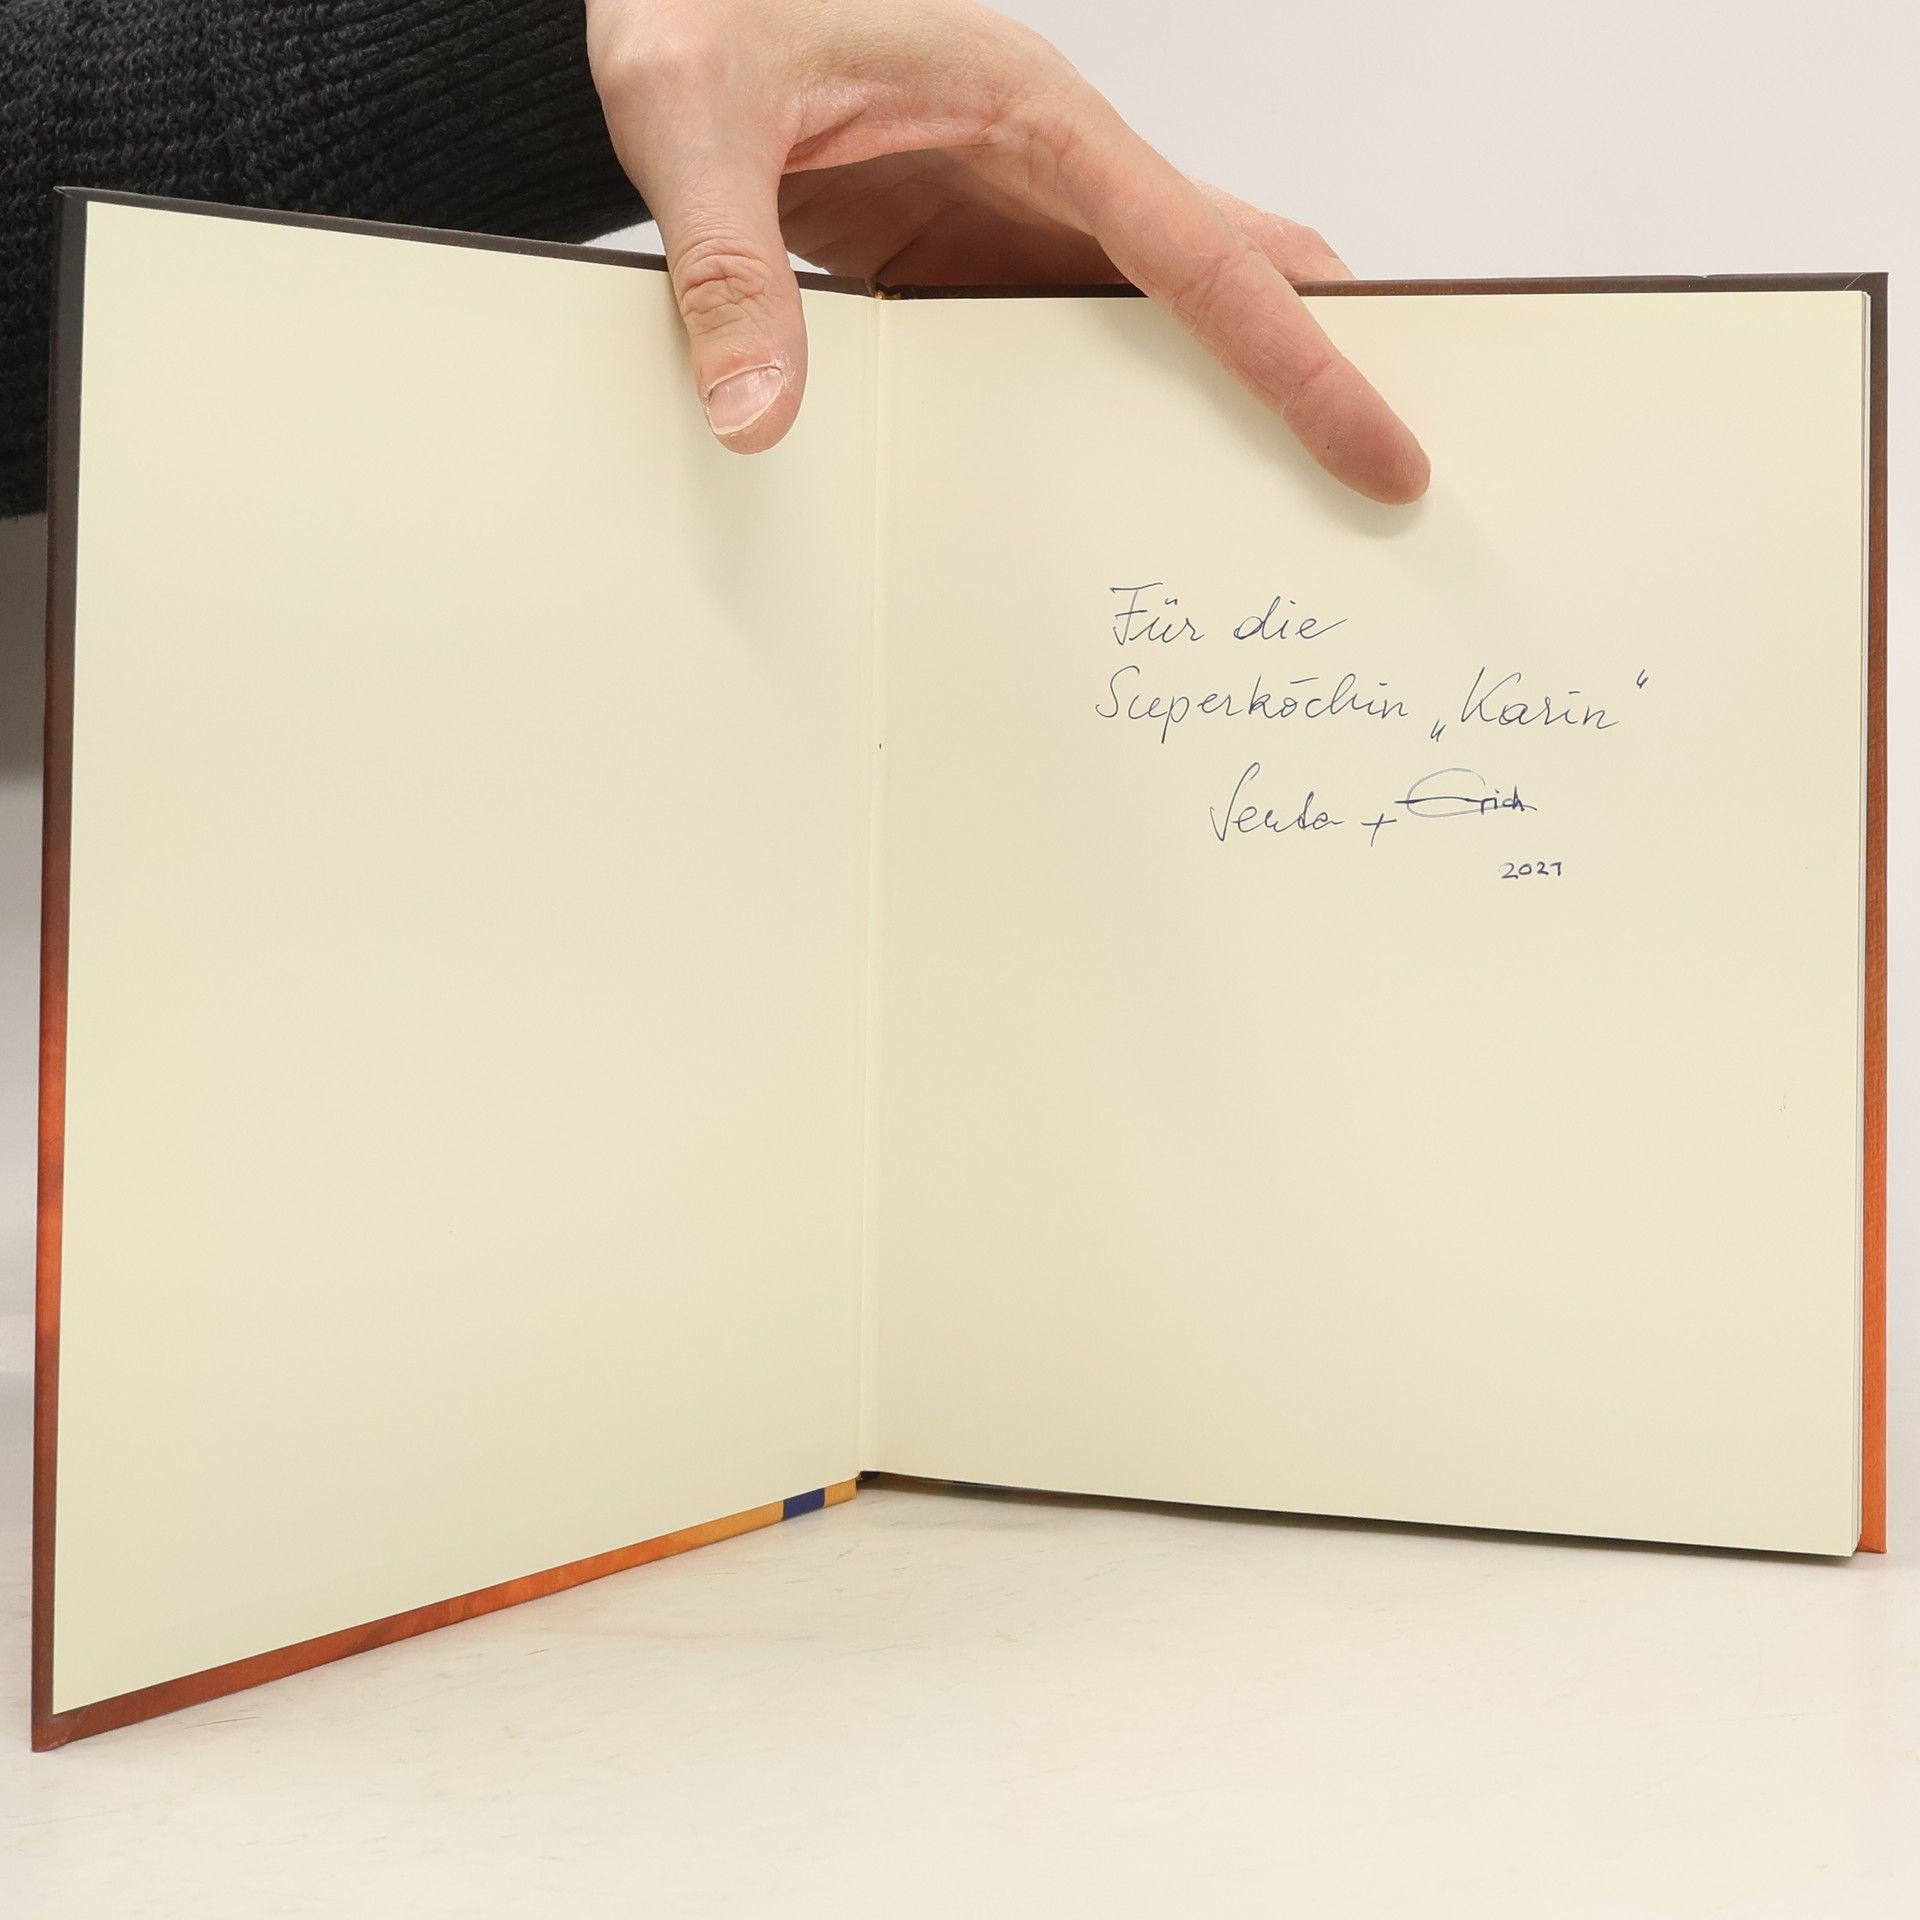 Für die
Superköchin „Karin“
Senta + Erich
2021